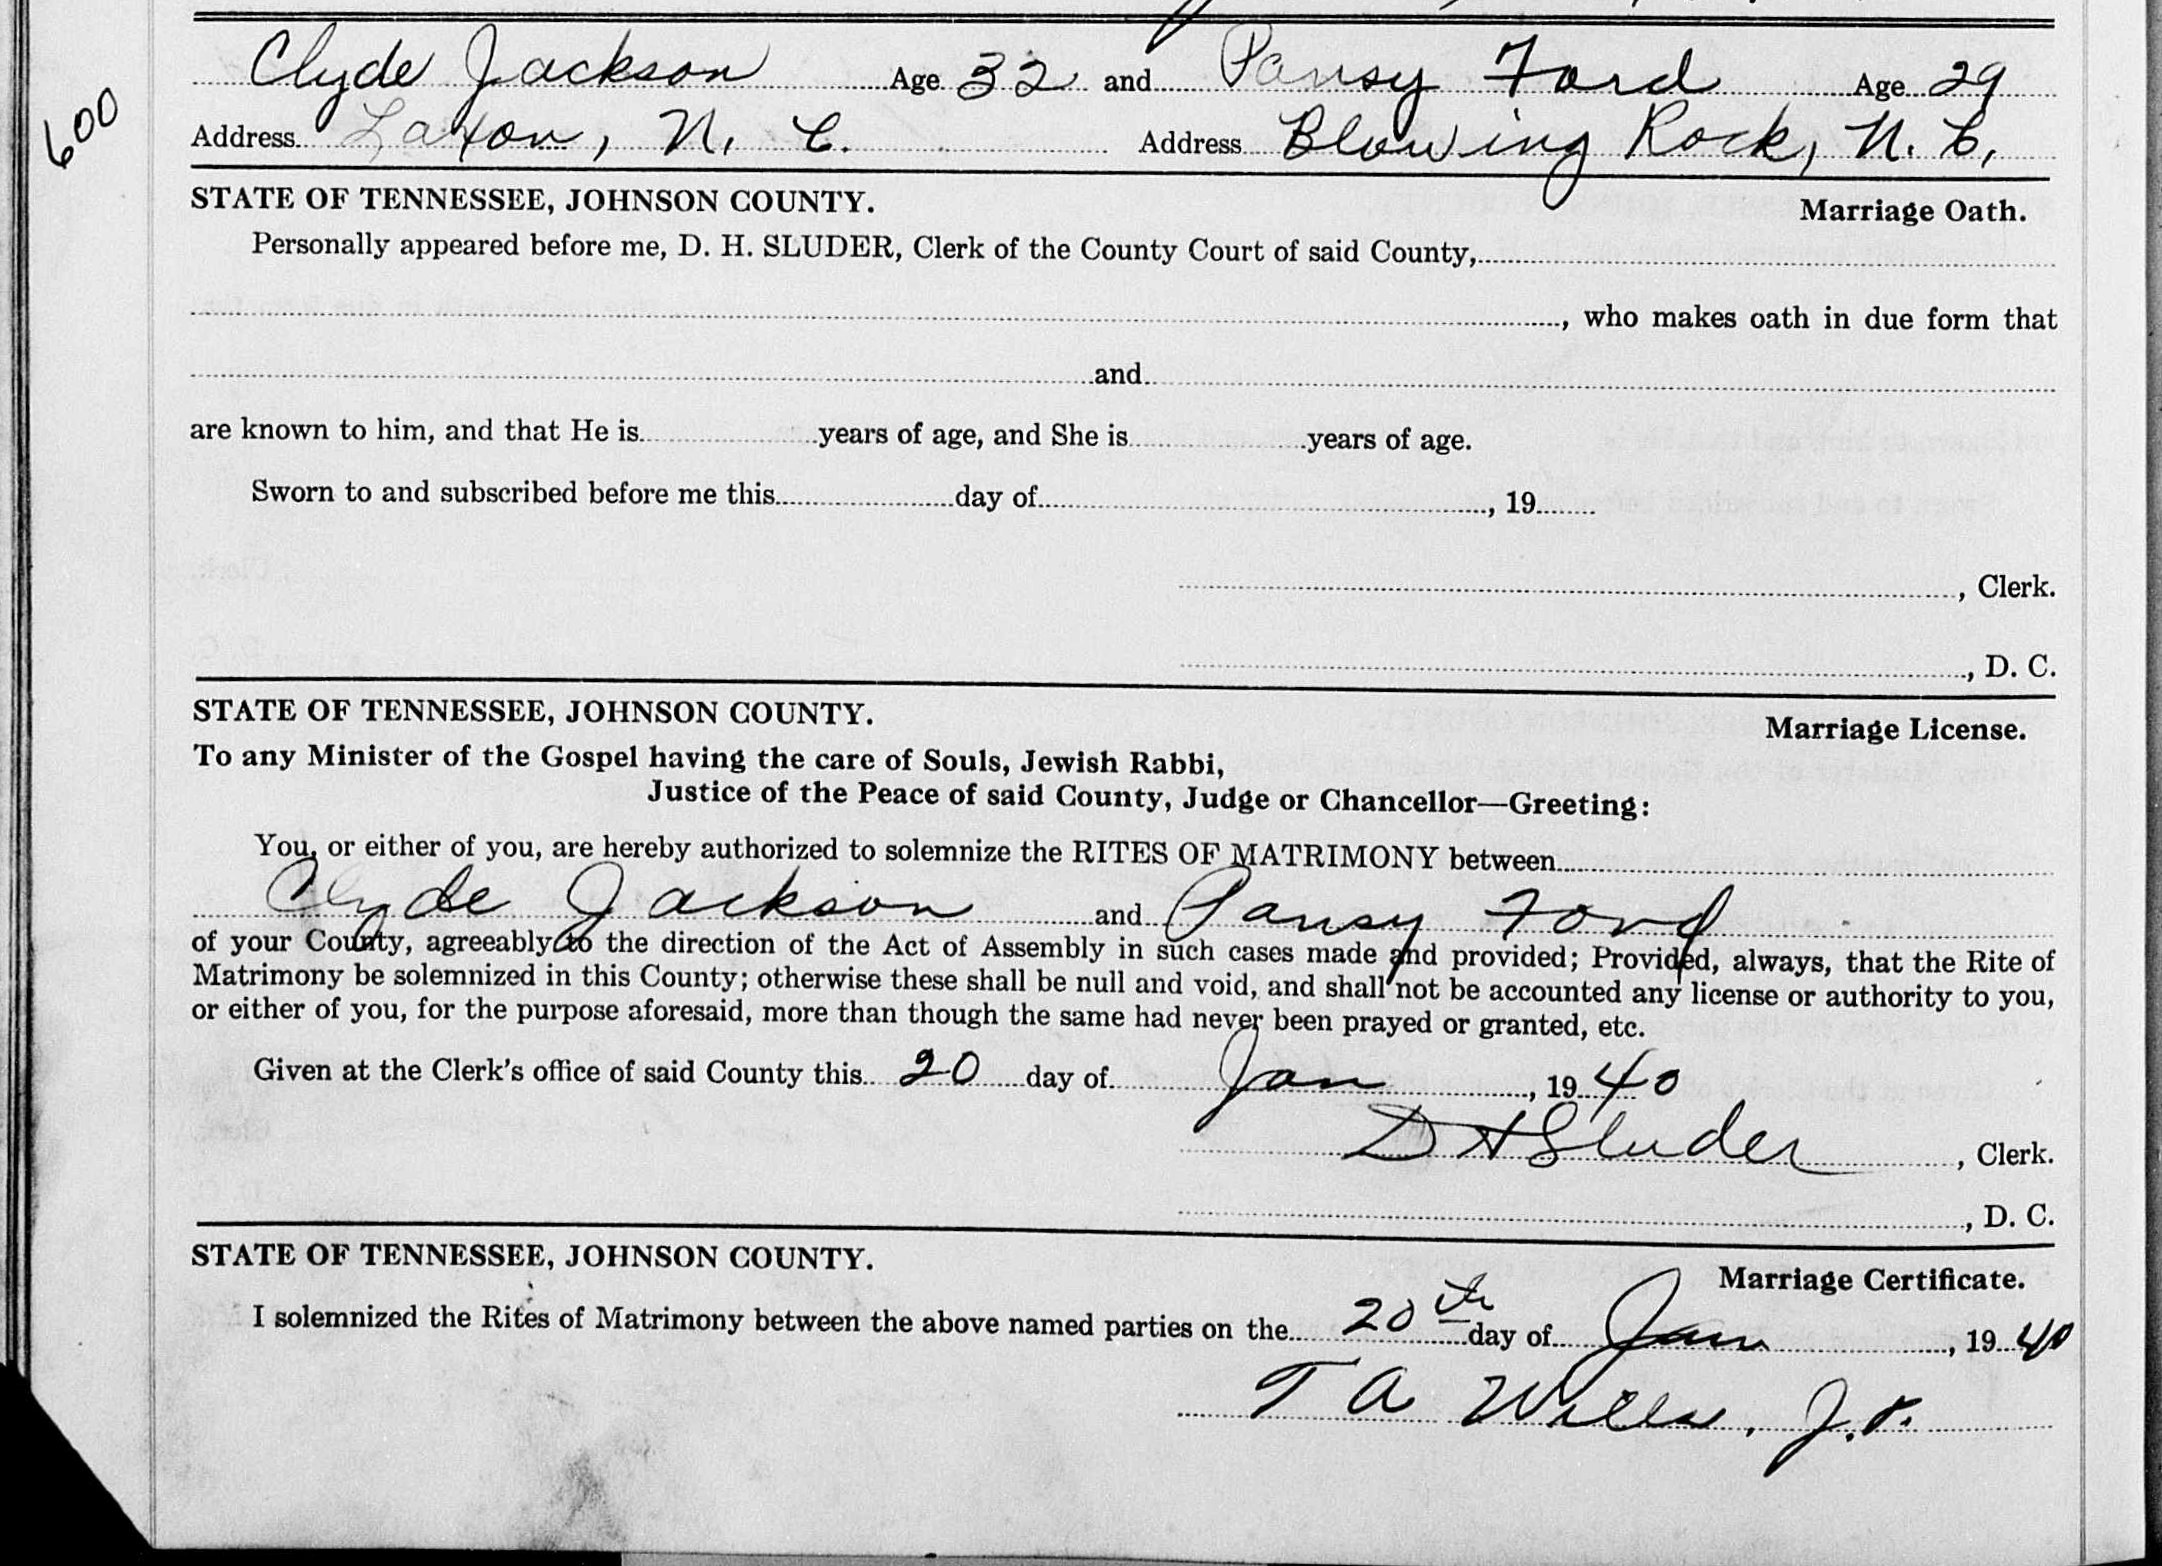 Clyde Jackson Age 32 and Pansy Ford Age 29
600
Address Laxon, N. C. Address Blowing Rock, N. C.
STATE OF TENNESSEE, JOHNSON COUNTY.
Marriage Oath.
Personally appeared before me, D. H. SLUDER, Clerk of the County Court of said County,
, who makes oath in due form that
and
are known to him, and that He is years of age, and She is years of age.
Sworn to and subscribed before me this day of , 19
, Clerk.
, D. C.
STATE OF TENNESSEE, JOHNSON COUNTY.
Marriage License.
To any Minister of the Gospel having the care of Souls, Jewish Rabbi,
Justice of the Peace of said County, Judge or Chancellor—Greeting:
You, or either of you, are hereby authorized to solemnize the RITES OF MATRIMONY between
Clyde Jackson and Pansy Ford
of your County, agreeably to the direction of the Act of Assembly in such cases made and provided; Provided, always, that the Rite of
Matrimony be solemnized in this County; otherwise these shall be null and void, and shall not be accounted any license or authority to you,
or either of you, for the purpose aforesaid, more than though the same had never been prayed or granted, etc.
Given at the Clerk's office of said County this 20 day of Jan , 1940
D H Sluder , Clerk.
, D. C.
STATE OF TENNESSEE, JOHNSON COUNTY.
Marriage Certificate.
I solemnized the Rites of Matrimony between the above named parties on the 20th day of Jan , 1940
T A Wills, J.P.